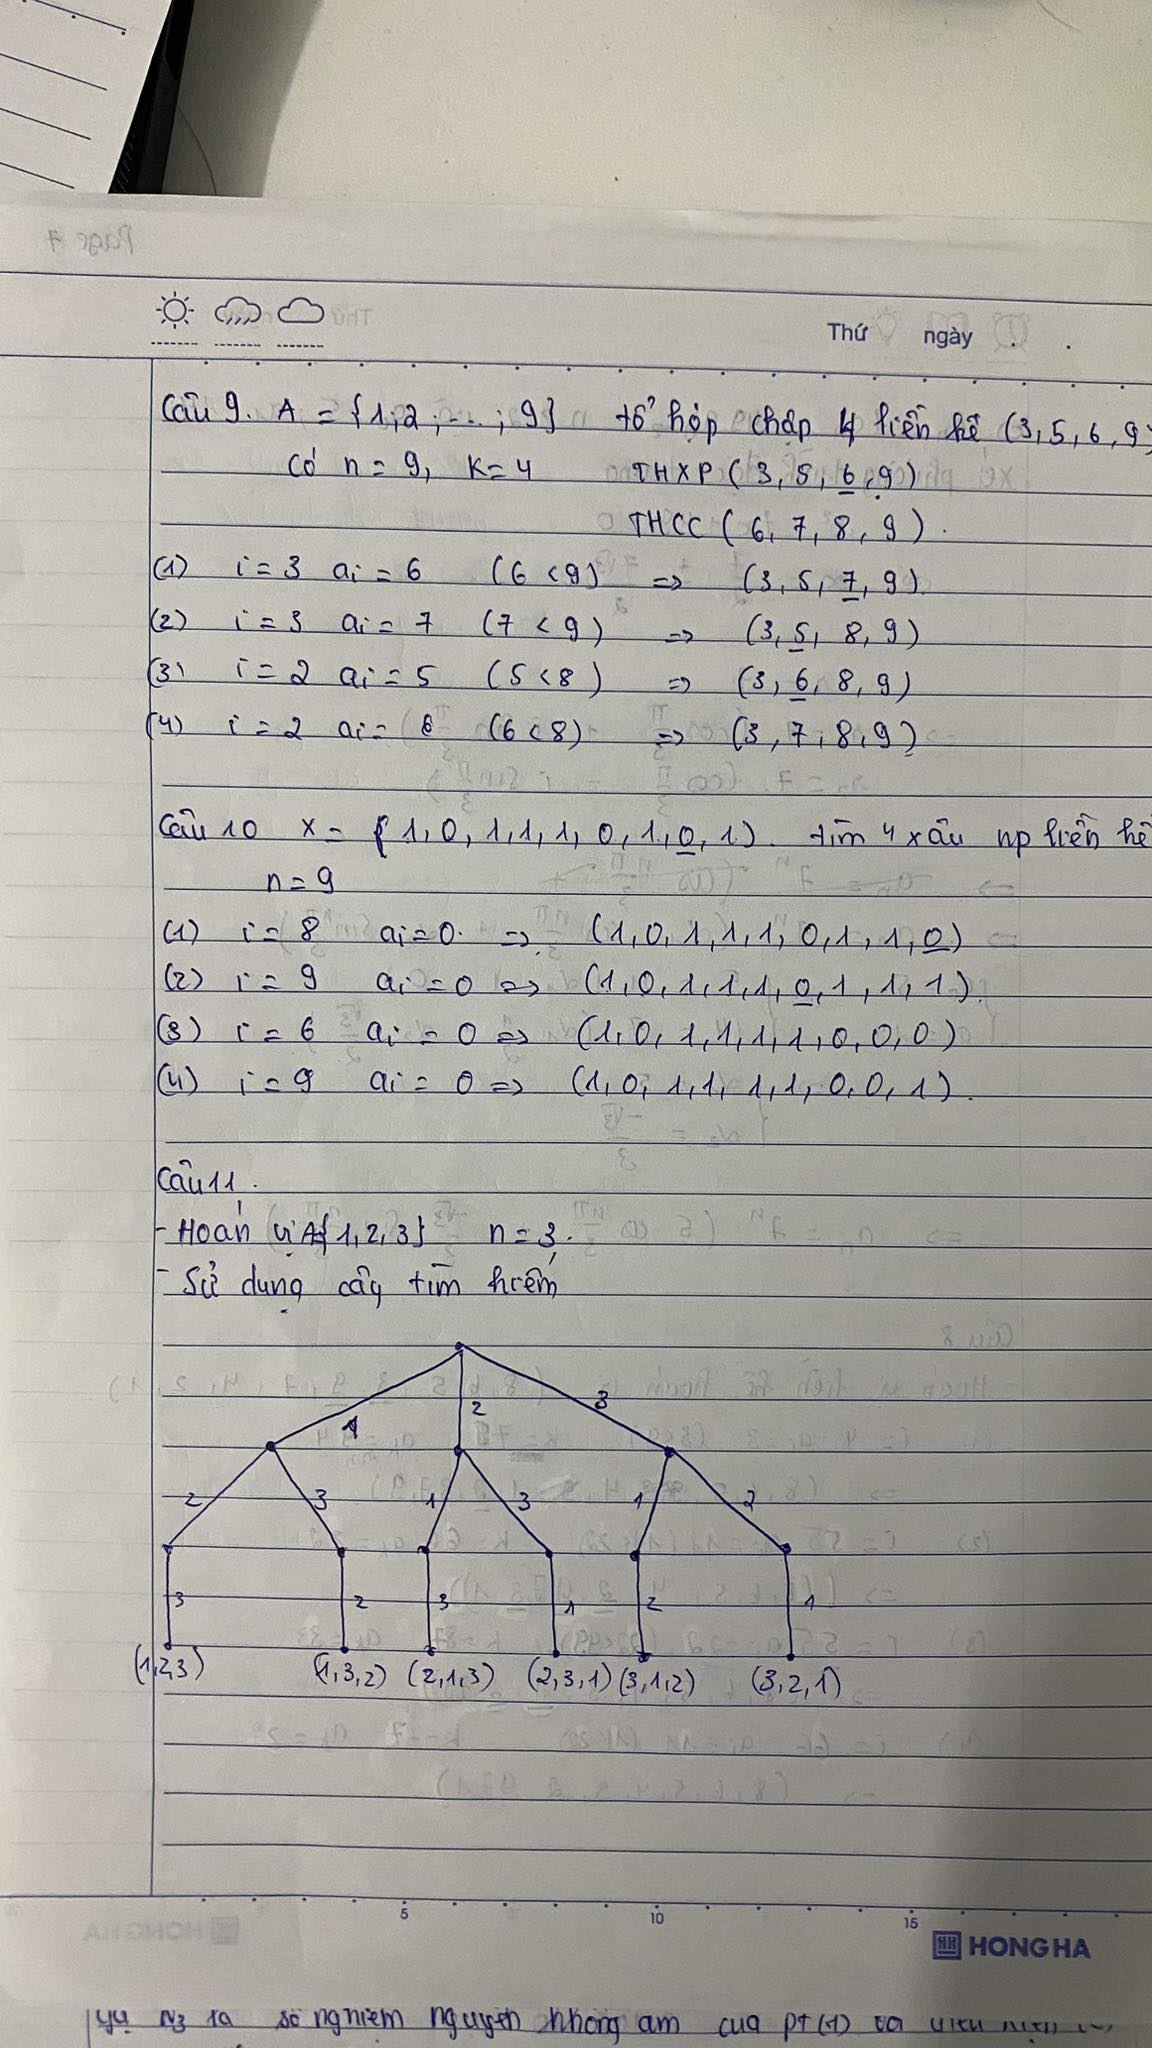 Page 7
Thứ ngày
Câu 9. A = {1,2,...,9} tổ hợp chập 4 liền kề (3,5,6,9)
Có n = 9, K = 4 THXP (3,5,6,9)
THCC (6,7,8,9).
(1) i = 3 ai = 6 (6 < 9) => (3,5,7,9)
(2) i = 3 ai = 7 (7 < 9) => (3,5,8,9)
(3) i = 2 ai = 5 (5 < 8) => (3,6,8,9)
(4) i = 2 ai = 6 (6 < 8) => (3,7,8,9)
Câu 10 X = (1,0,1,1,1,0,1,0,1). tìm 4 xâu np liền kề
n = 9
(1) i = 8 ai = 0 => (1,0,1,1,1,0,1,1,0)
(2) i = 9 ai = 0 => (1,0,1,1,1,0,1,1,1).
(3) i = 6 ai = 0 => (1,0,1,1,1,1,0,0,0)
(4) i = 9 ai = 0 => (1,0,1,1,1,1,0,0,1).
Câu 11.
- Hoán vị A={1,2,3} n = 3.
- Sử dụng cây tìm kiếm
1 2 3
2 3 1 3 1 2
3 2 3 1 2 1
(1,2,3) (1,3,2) (2,1,3) (2,3,1) (3,1,2) (3,2,1)
5 10 15
HONG HA
số nghiệm nguyên không âm của pt (1)